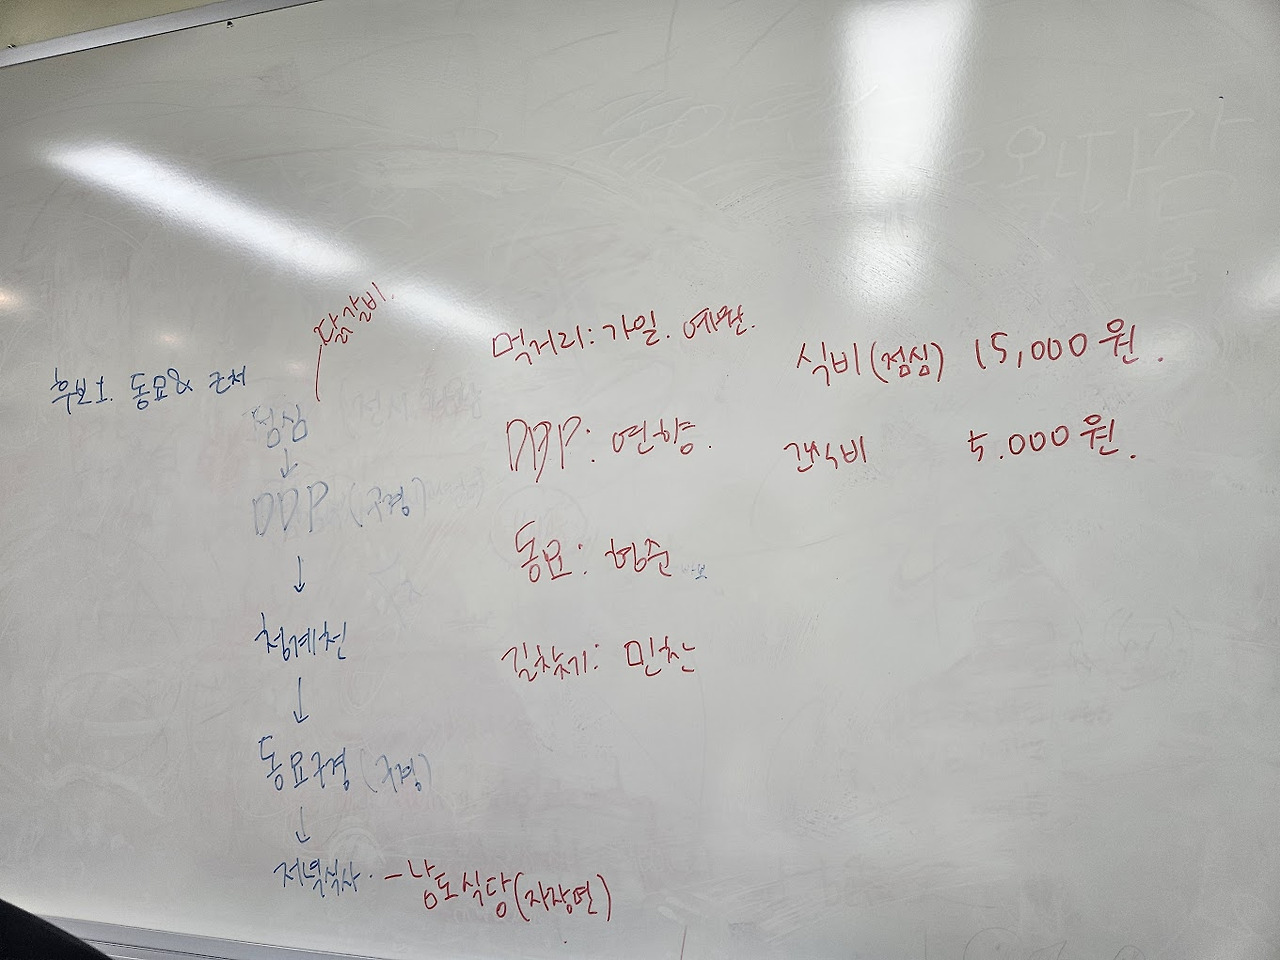 닭갈비.
후보1. 동묘& 근처
점심
↓
DDP (구경)
↓
청계천
↓
동묘구경 (구경)
↓
저녁식사. - 낭도식당(자장면)
먹거리: 가일. 예완.
DDP: 연향.
동묘: 형준 바보
길찾기: 민찬
식비(점심) 15,000원.
간식비 5.000원.